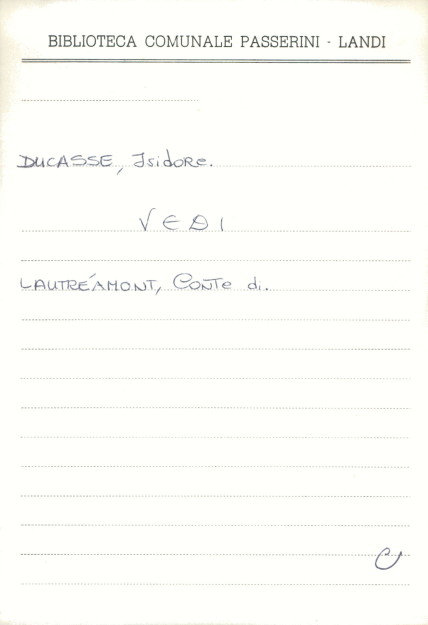 BIBLIOTECA COMUNALE PASSERINI - LANDI
DUCASSE, Isidore.
VEDI
LAUTRÉAMONT, Conte di.